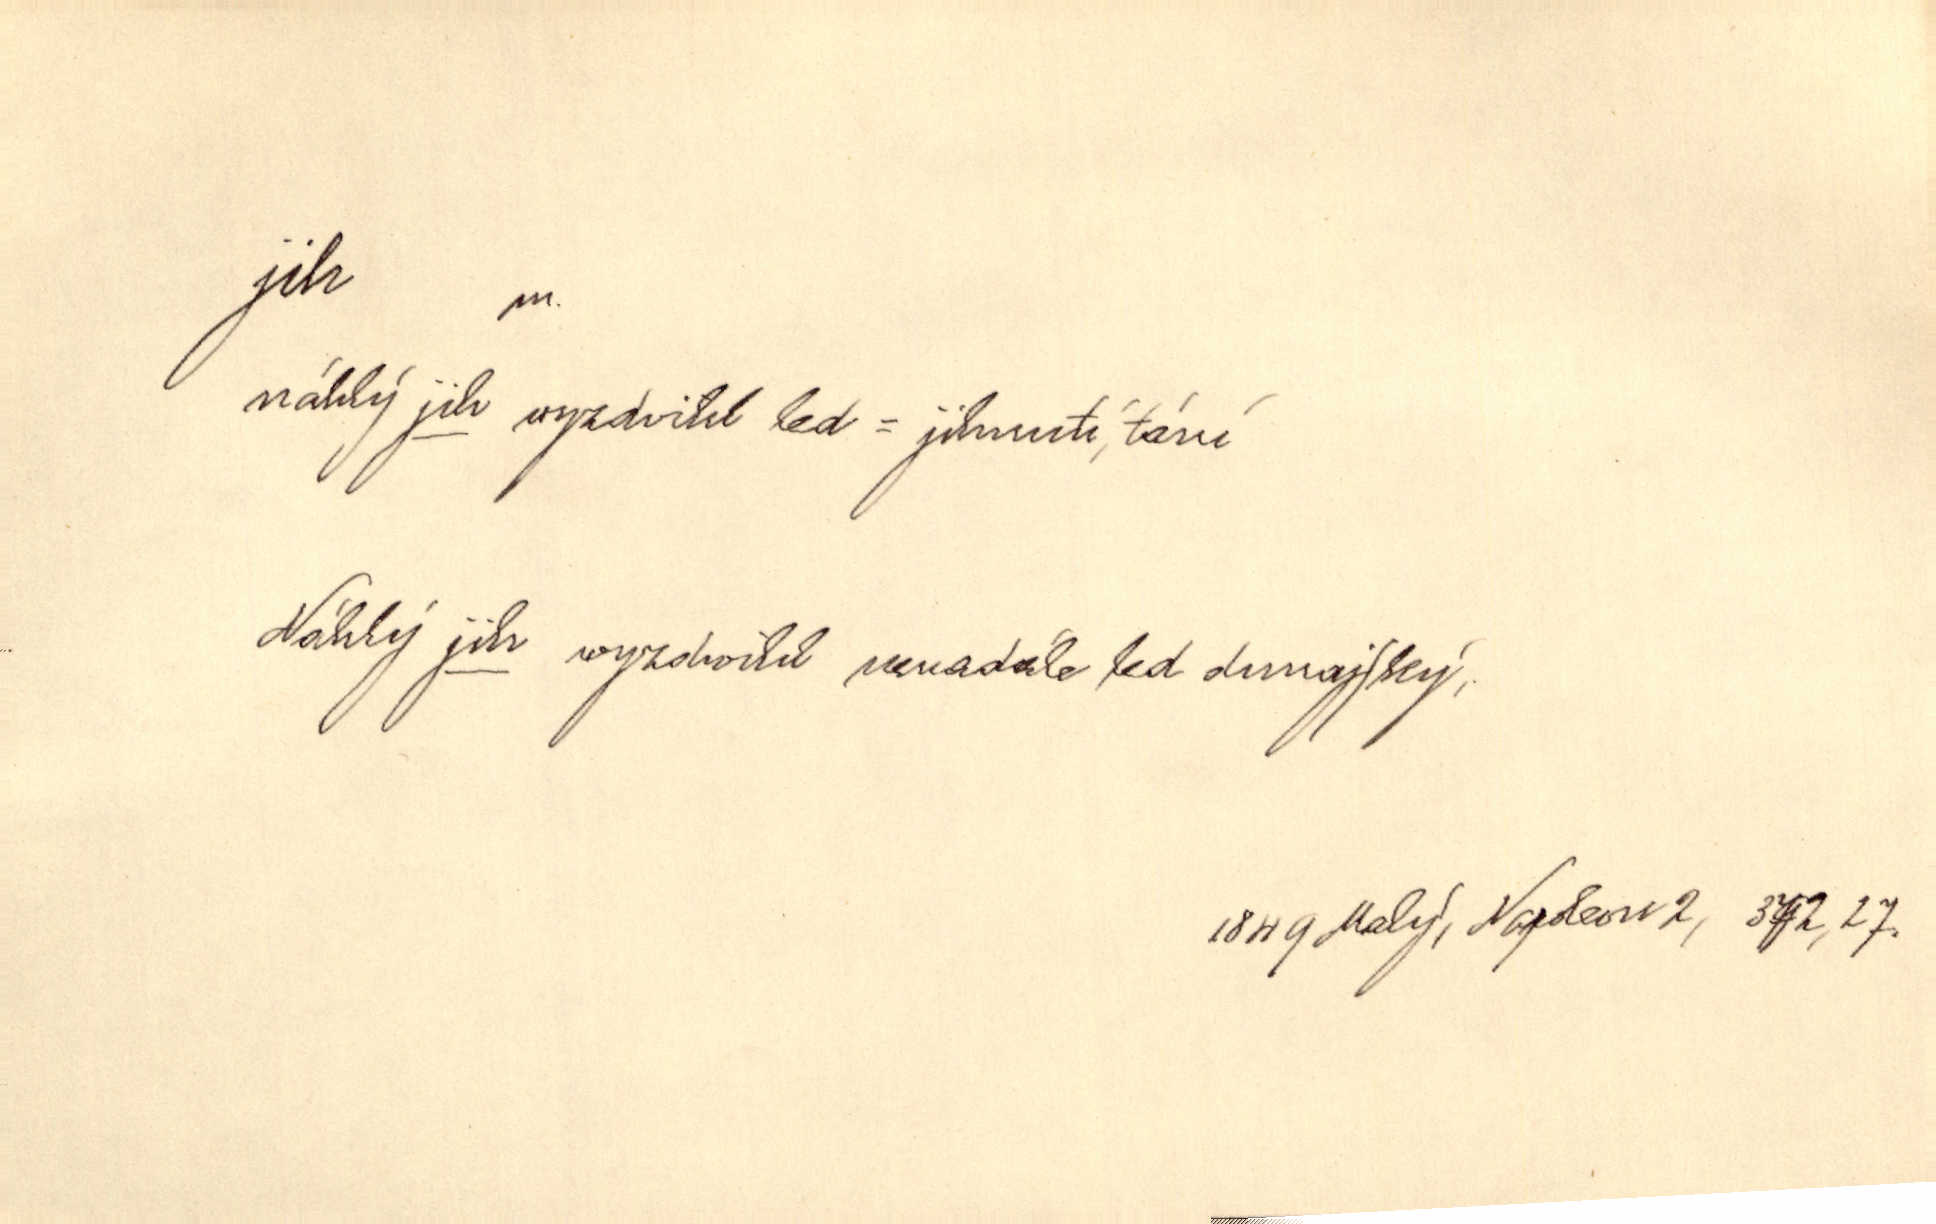 jih m.
náhlý jih wyzdvihl led = jihnutí, tání
Náhlý jih wyzdwihl nenadále led dunajský,
1849 Malý, Napoleon 2, 372, 27.